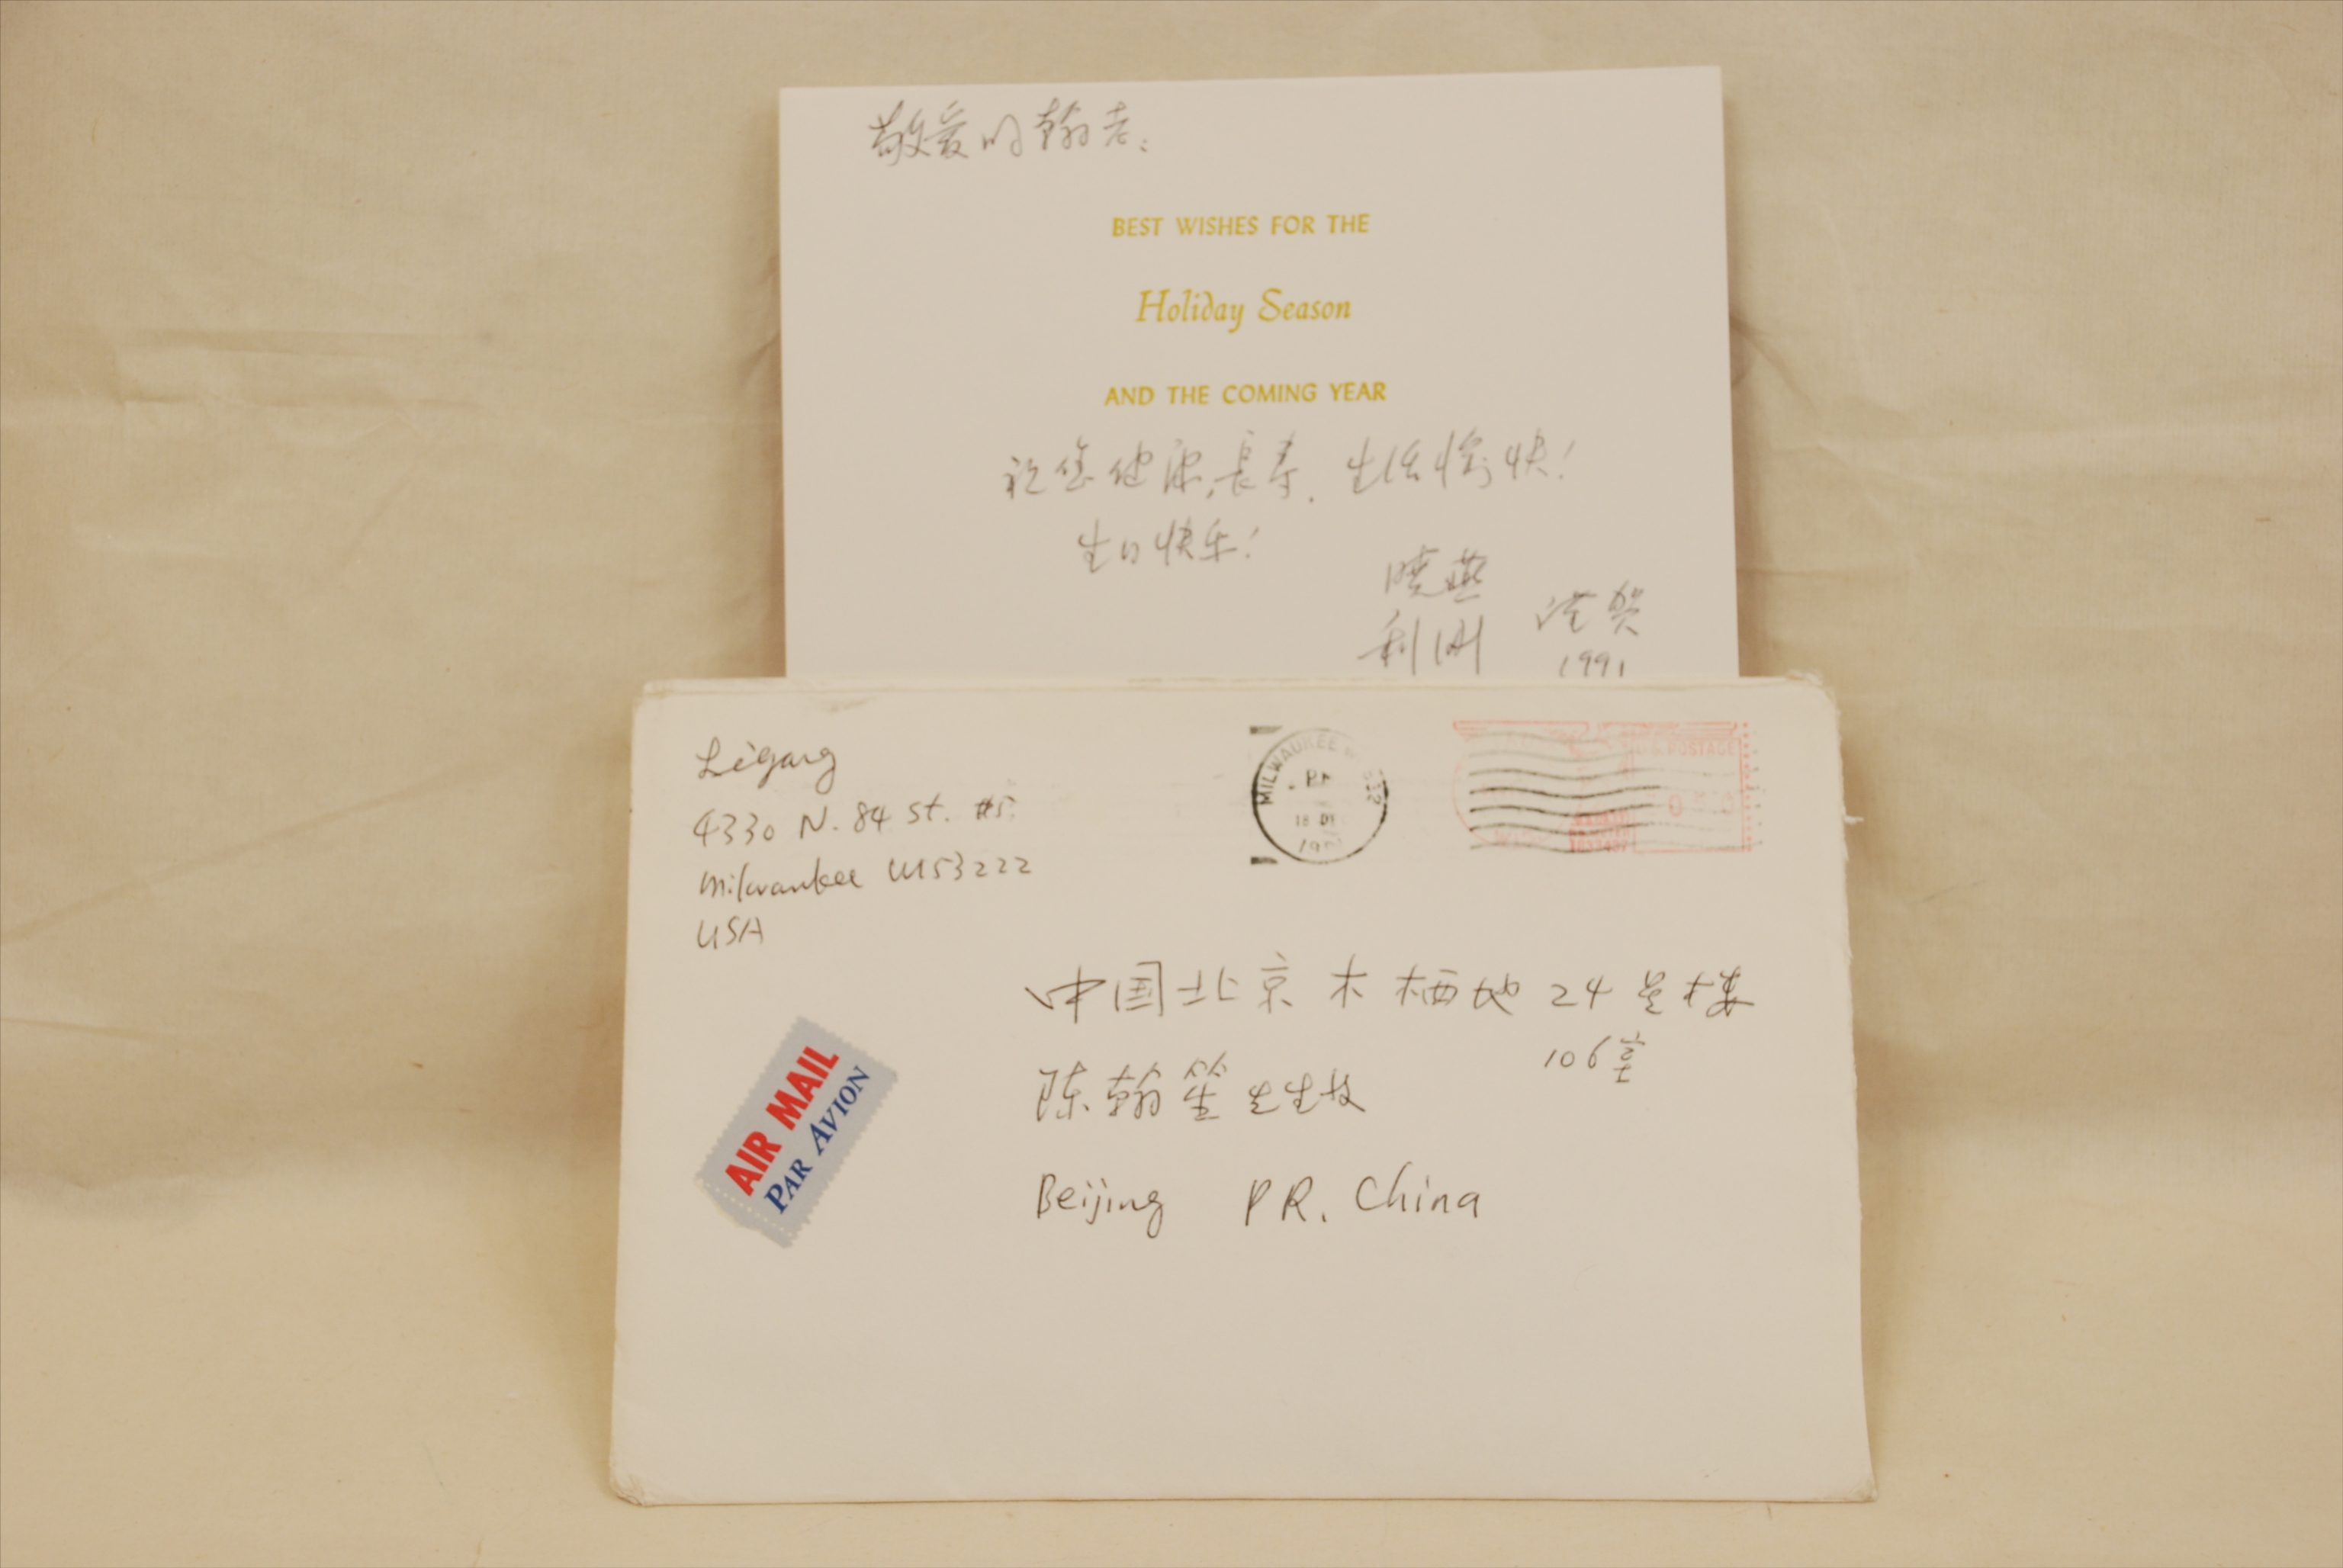 敬爱的翰老:
BEST WISHES FOR THE
Holiday Season
AND THE COMING YEAR
祝您健康,長寿.生活愉快!
生日快乐!
晓燕
利刚 谨贺
1991
Ligang
4330 N. 84 St. #5
Milwaukee WI 53222
USA
MILWAUKEE
PM
18
U.S. POSTAGE
中国北京木樨地24号楼
106室
陈翰笙先生收
Beijing PR. China
AIR MAIL
PAR AVION